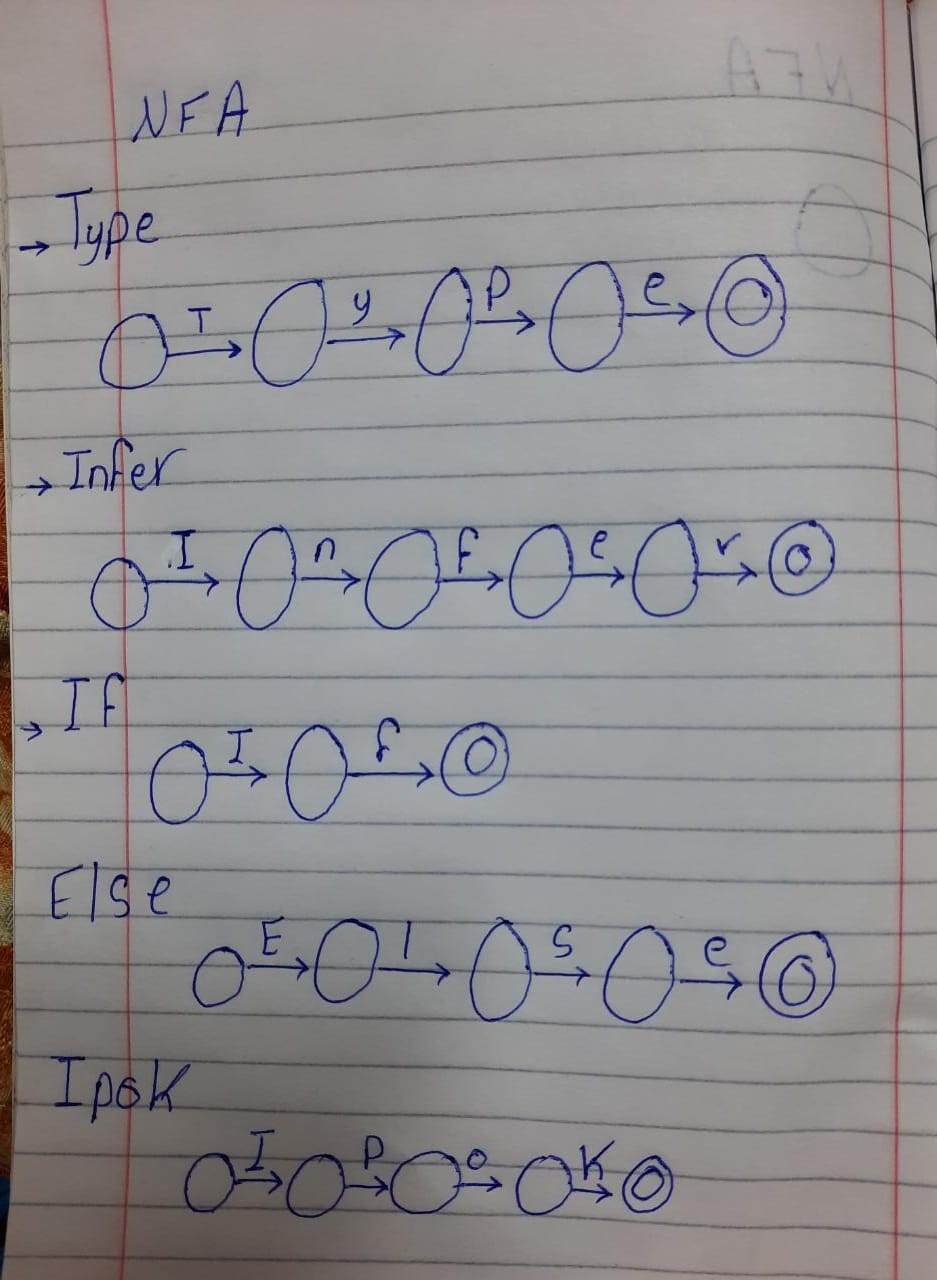 NFA
→ Type
T y p e
→ Infer
I n f e r
→ If
I f
Else
E l s e
Ipok
I p o k